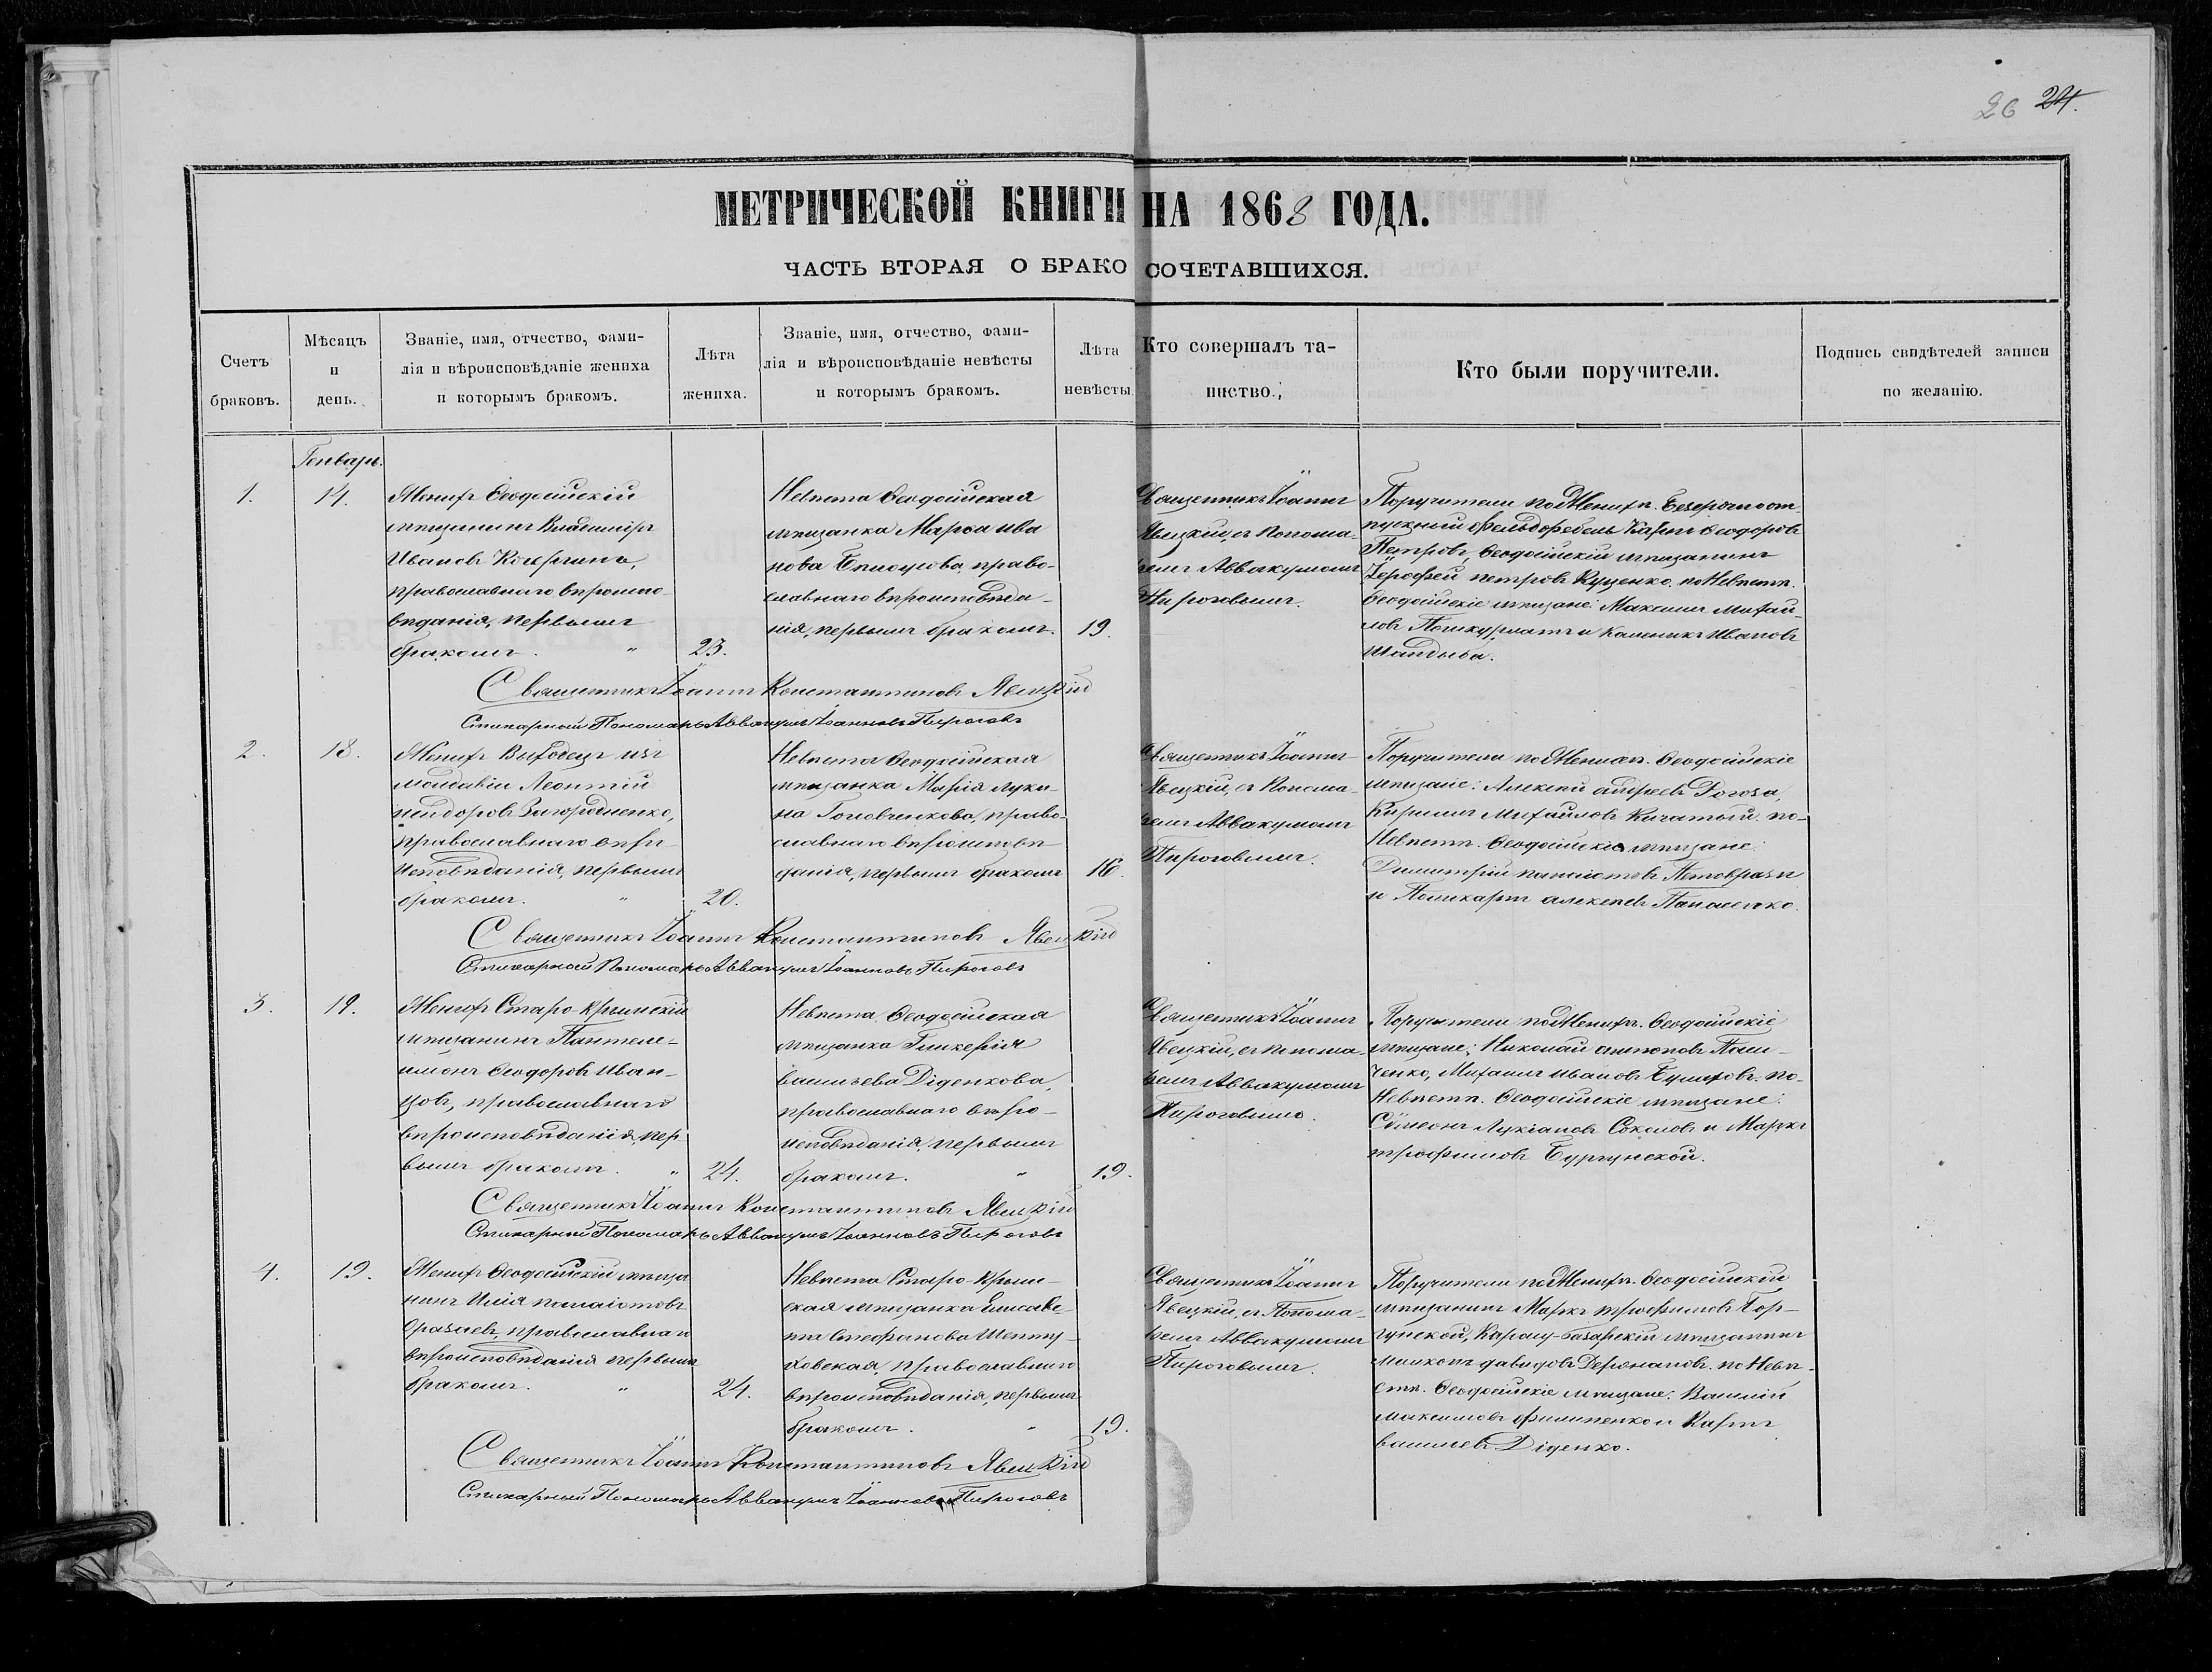 26 24.
МЕТРИЧЕСКОЙ КНИГИ НА 1868 ГОДА.
ЧАСТЬ ВТОРАЯ О БРАКОСОЧЕТАВШИХСЯ.
Счетъ
браковъ.
Мѣсяцъ
и
день.
Званіе, имя, отчество, фами-
лія и вѣроисповѣданіе жениха
и которымъ бракомъ.
Лѣта
жениха.
Званіе, имя, отчество, фами-
лія и вѣроисповѣданіе невѣсты
и которымъ бракомъ.
Лѣта
невѣсты.
Кто совершалъ та-
инство.
Кто были поручители.
Подпись свидѣтелей записи
по желанію.
Генварь.
1.
14.
Женихъ Ѳеодосійскій
мѣщанинъ Владиміръ
Ивановъ
православнаго вѣроиспо-
вѣданія, первымъ
бракомъ. "
23.
Невѣста Ѳеодосійская
мѣщанка Марѳа ива
нова право-
славнаго вѣроисповѣда-
нія, первымъ бракомъ.
19.
Священникъ Іоаннъ
Явецкій, съ понома-
ремъ Аввакумомъ
Пироговымъ.
Поручители по Женихѣ. Безсрочноот-
пускный фельдфебель Карпъ Ѳеодоровъ
Петровъ, Ѳеодосійскій мѣщанинъ
Іероѳей петровъ Куценко. по Невѣстѣ.
Ѳеодосійскіе мѣщане: Максимъ Михай-
ловъ и Ивановъ
Шандыба.
Священникъ Іоаннъ Константиновъ Явецкій
Стихарный Пономарь Аввакумъ Іоанновъ Пироговъ
2.
18.
Женихъ Выходецъ изъ
молдавіи Леонтій
Загородненко,
православнаго вѣро-
исповѣданія, первымъ
бракомъ. "
20.
Невѣста Ѳеодосійская
мѣщанка Марія луки-
на Головченкова, право-
славнаго вѣроисповѣ-
данія, первымъ бракомъ
16.
Священникъ Іоаннъ
Явецкій, съ Понома-
ремъ Аввакумомъ
Пироговымъ.
Поручители по Женихѣ. Ѳеодосійскіе
мѣщане: Алексѣй андреевъ Рогоза,
Кирилъ Михайловъ по-
Невѣстѣ. Ѳеодосійскіе мѣщане:
Димитрій панаіотовъ
и Поликарпъ алексѣевъ
Священникъ Іоаннъ Константиновъ Явецкій
Стихарный Пономарь Аввакумъ Іоанновъ Пироговъ
3.
19.
Женихъ Старо-Крымскій
мѣщанинъ Пантеле-
имонъ Ѳеодоровъ Иван-
цовъ, православнаго
вѣроисповѣданія, пер-
вымъ бракомъ. "
24.
Невѣста Ѳеодосійская
мѣщанка Гликерія
васильева Діденкова,
православнаго вѣро-
исповѣданія, первымъ
бракомъ. "
19.
Священникъ Іоаннъ
Явецкій, съ понома-
ремъ Аввакумомъ
Пироговымъ.
Поручители по Женихѣ. Ѳеодосійскіе
мѣщане: Николай
ченко, Михаилъ ивановъ по-
Невѣстѣ. Ѳеодосійскіе мѣщане:
Симеонъ Лукіановъ Соколовъ и Маркъ
трофимовъ Бургунской.
Священникъ Іоаннъ Константиновъ Явецкій
Стихарный Пономарь Аввакумъ Іоанновъ Пироговъ
4.
19.
Женихъ Ѳеодосійскій мѣща
нинъ Илія панаіотовъ
православнаго
вѣроисповѣданія первымъ
бракомъ. "
24.
Невѣста Старо-Крым-
ская мѣщанка Елисаве-
та Стефанова Шепту-
ховская, православнаго
вѣроисповѣданія, первымъ
бракомъ. "
19.
Священникъ Іоаннъ
Явецкій, съ Понома-
ремъ Аввакумомъ
Пироговымъ.
Поручители по Женихѣ. Ѳеодосійскій
мѣщанинъ Маркъ трофимовъ Бор-
гунской, Карасу-базарскій мѣщанинъ
давидовъ по Невѣ-
стѣ. Ѳеодосійскіе мѣщане: Василій
максимовъ филипенко и Карпъ
васильевъ Діденко.
Священникъ Іоаннъ Константиновъ Явецкій
Стихарный Пономарь Аввакумъ Іоанновъ Пироговъ